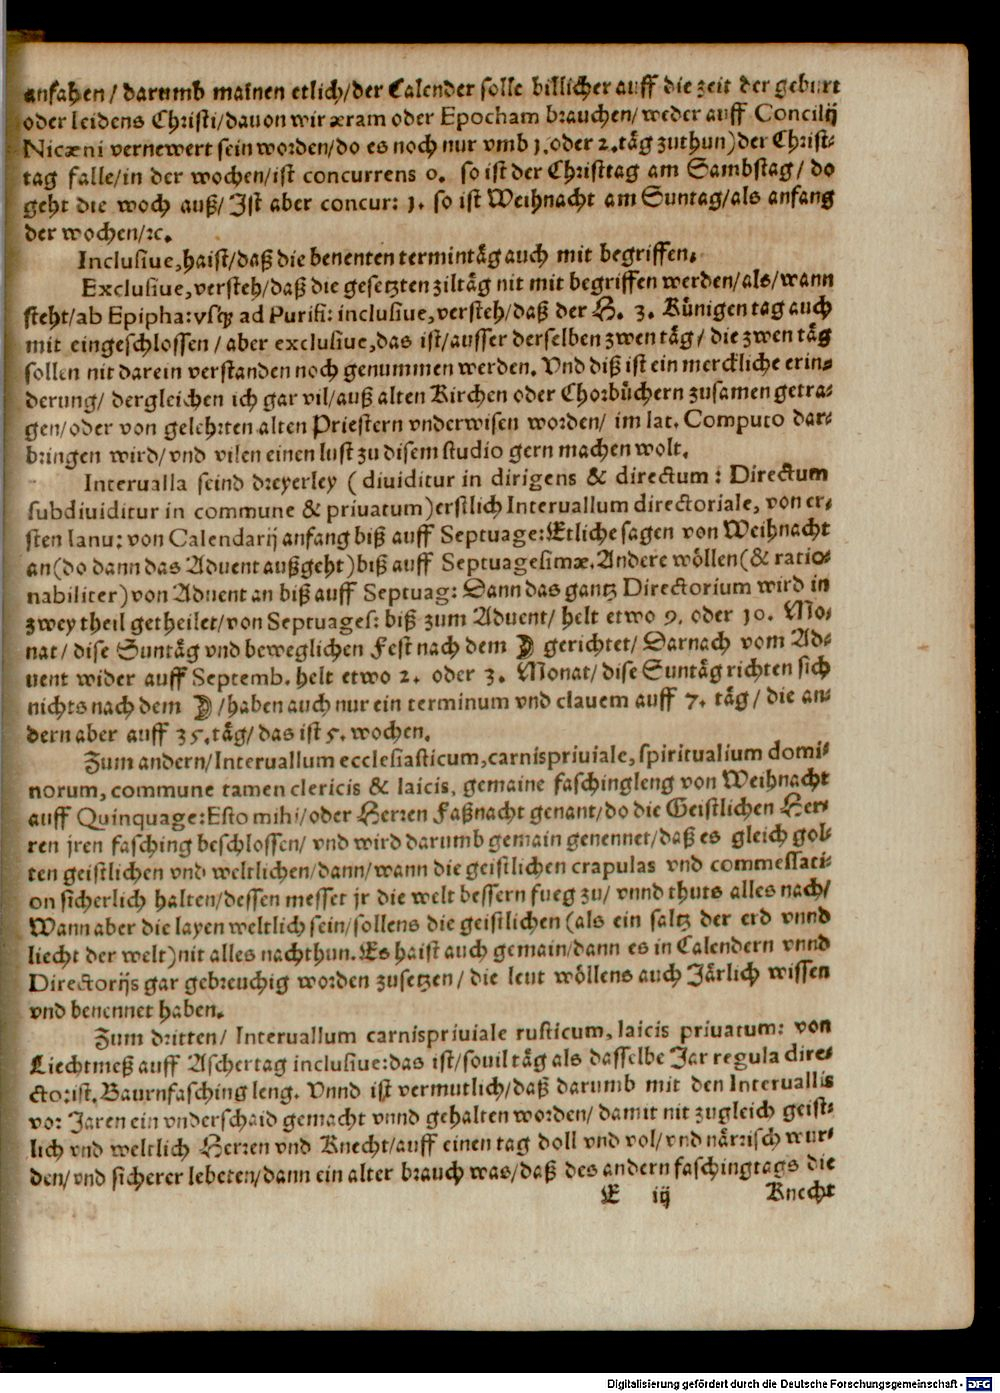 anfahen / darumb mainen etlich/der Calender solle billicher auff die zeit der geburt
oder leidens Christi/dauon wir æram oder Epocham brauchen/weder auff Concilij
Nicæni vernewert sein worden/do es noch nur vmb 1.oder 2.täg zuthun) der Christ⸗
tag falle/in der wochen/ist concurrens 0. so ist der Christtag am Sambstag/ do
geht die woch auß/ Ist aber concur: 1. so ist Weihnacht am Suntag/als anfang
der wochen/ꝛc.
Inclusiue,haist/daß die benenten termintäg auch mit begriffen.
Exclusiue,versteh/daß die gesetzten ziltäg nit mit begriffen werden/als/wann
steht/ab Epipha:vsq; ad Purifi: inclusiue,versteh/daß der H. 3. Künigen tag auch
mit eingeschlossen / aber exclusiue,das ist/ausser derselben zwen täg / die zwen täg
sollen nit darein verstanden noch genummen werden. Vnd diß ist ein merckliche erin⸗
derung/ dergleichen ich gar vil/auß alten Kirchen oder Chorbüchern zusamen getra⸗
gen/oder von gelehrten alten Priestern vnderwisen worden/ im lat. Computo dar⸗
bringen wird/vnd vilen einen lust zu disem studio gern machen wolt.
Interualla seind dreyerley ( diuiditur in dirigens & directum : Directum
subdiuiditur in commune & priuatum)erstlich Interuallum directoriale, von er⸗
sten Ianu: von Calendarij anfang biß auff Septuage:Etliche sagen von Weihnacht
an(do dann das Aduent außgeht)biß auff Septuagesimæ.Andere wöllen(& ratio⸗
nabiliter)von Aduent an biß auff Septuag: Dann das gantz Directorium wird in
zwey theil getheilet/von Septuages: biß zum Aduent/ helt etwo 9. oder 10. Mo⸗
nat/ dise Suntäg vnd beweglichen Fest nach dem ☽ gerichtet/ Darnach vom Ad⸗
uent wider auff Septemb. helt etwo 2. oder 3. Monat/ dise Suntäg richten sich
nichts nach dem ☽ /haben auch nur ein terminum vnd clauem auff 7. täg / die an⸗
dern aber auff 35.täg/ das ist 5. wochen.
Zum andern/Interuallum ecclesiasticum,carnispriuiale, spiritualium domi⸗
norum, commune tamen clericis & laicis, gemaine faschingleng von Weihnacht
auff Quinquage:Esto mihi/oder Herren Faßnacht genant/do die Geistlichen Her⸗
ren jren fasching beschlossen/ vnd wird darumb gemain genennet/daß es gleich gol⸗
ten geistlichen vnd weltlichen/dann/wann die geistlichen crapulas vnd commessati⸗
on sicherlich halten/dessen messet jr die welt bessern fueg zu/ vnnd thuts alles nach/
Wann aber die layen weltlich sein/sollens die geistlichen (als ein saltz der erd vnnd
liecht der welt)nit alles nachthun.Es haist auch gemain/dann es in Calendern vnnd
Directorijs gar gebreuchig worden zusetzen / die leut wöllens auch Järlich wissen
vnd benennet haben.
Zum dritten/ Interuallum carnispriuiale rusticum, laicis priuatum: von
Liechtmeß auff Aschertag inclusiue:das ist/souil täg als dasselbe Jar regula dire⸗
cto:ist.Baurnfasching leng. Vnnd ist vermutlich/daß darumb mit den Interuallis
vor Jaren ein vnderschaid gemacht vnnd gehalten worden/ damit nit zugleich geist⸗
lich vnd weltlich Herren vnd Knecht/auff einen tag doll vnd vol/vnd närrisch wur⸗
den/vnd sicherer lebeten/dann ein alter brauch was/daß des andern faschingtags die
E iij Knecht
Digitalisierung gefördert durch die Deutsche Forschungsgemeinschaft - DFG